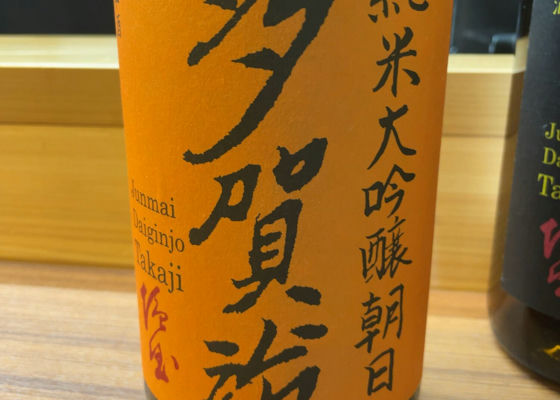 純米大吟醸朝日
多賀治
Junmai
Daiginjo
Takaji
Ju
Da
Ta